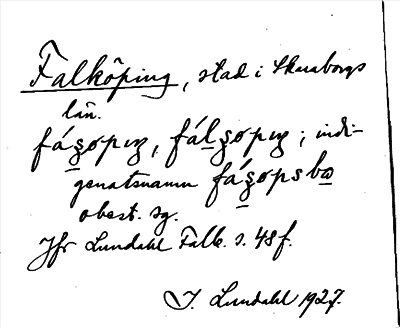 Falköping, stad i Skaraborgs
län.
fáʂøpıŋ, fálʂøpıŋ; indi-
genatsnamn fáʂøpsbo
obest. sg.
Jfr Lundahl Falb. s. 48 f.
I. Lundahl 1927.